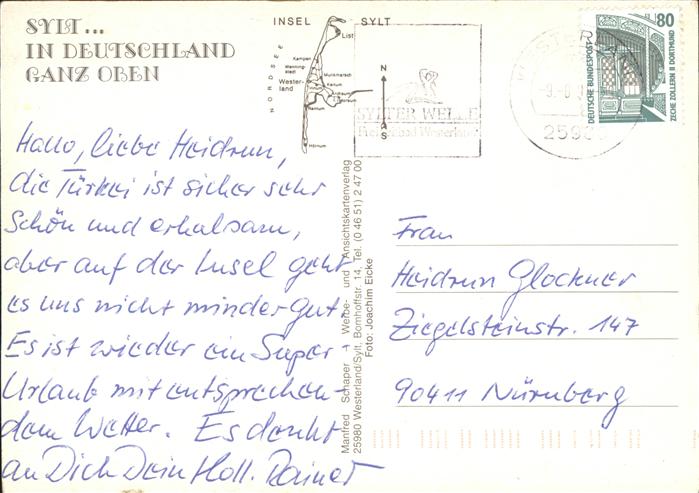 SYLT...
IN DEUTSCHLAND
GANZ OBEN
INSEL SYLT
List
Kampen
Wenning-
stedt
Wester-
land
Munkmarsch
Keitum
Rantum
Hörnum
NORDSEE
N
S
SYLTER WELLE
Westerland
25980
80
DEUTSCHE BUNDESPOST
ZECHE ZOLLERN II DORTMUND
Hallo, liebe Heidrun,
die Türkei ist sicher sehr
schön und erholsam,
aber auf der Insel geht
es uns nicht minder gut.
Es ist wieder ein Super
Urlaub mit entsprechen-
dem Wetter. Es denkt
an Dich Dein Holl. Rainer
Manfred Schaper Werbe- und Ansichtskartenverlag
25980 Westerland/Sylt, Bomhoffstr. 14, Tel. (0 46 51) 2 47 00
Foto: Joachim Eicke
Frau
Heidrun Glockner
Ziegelsteinstr. 147
90411 Nürnberg